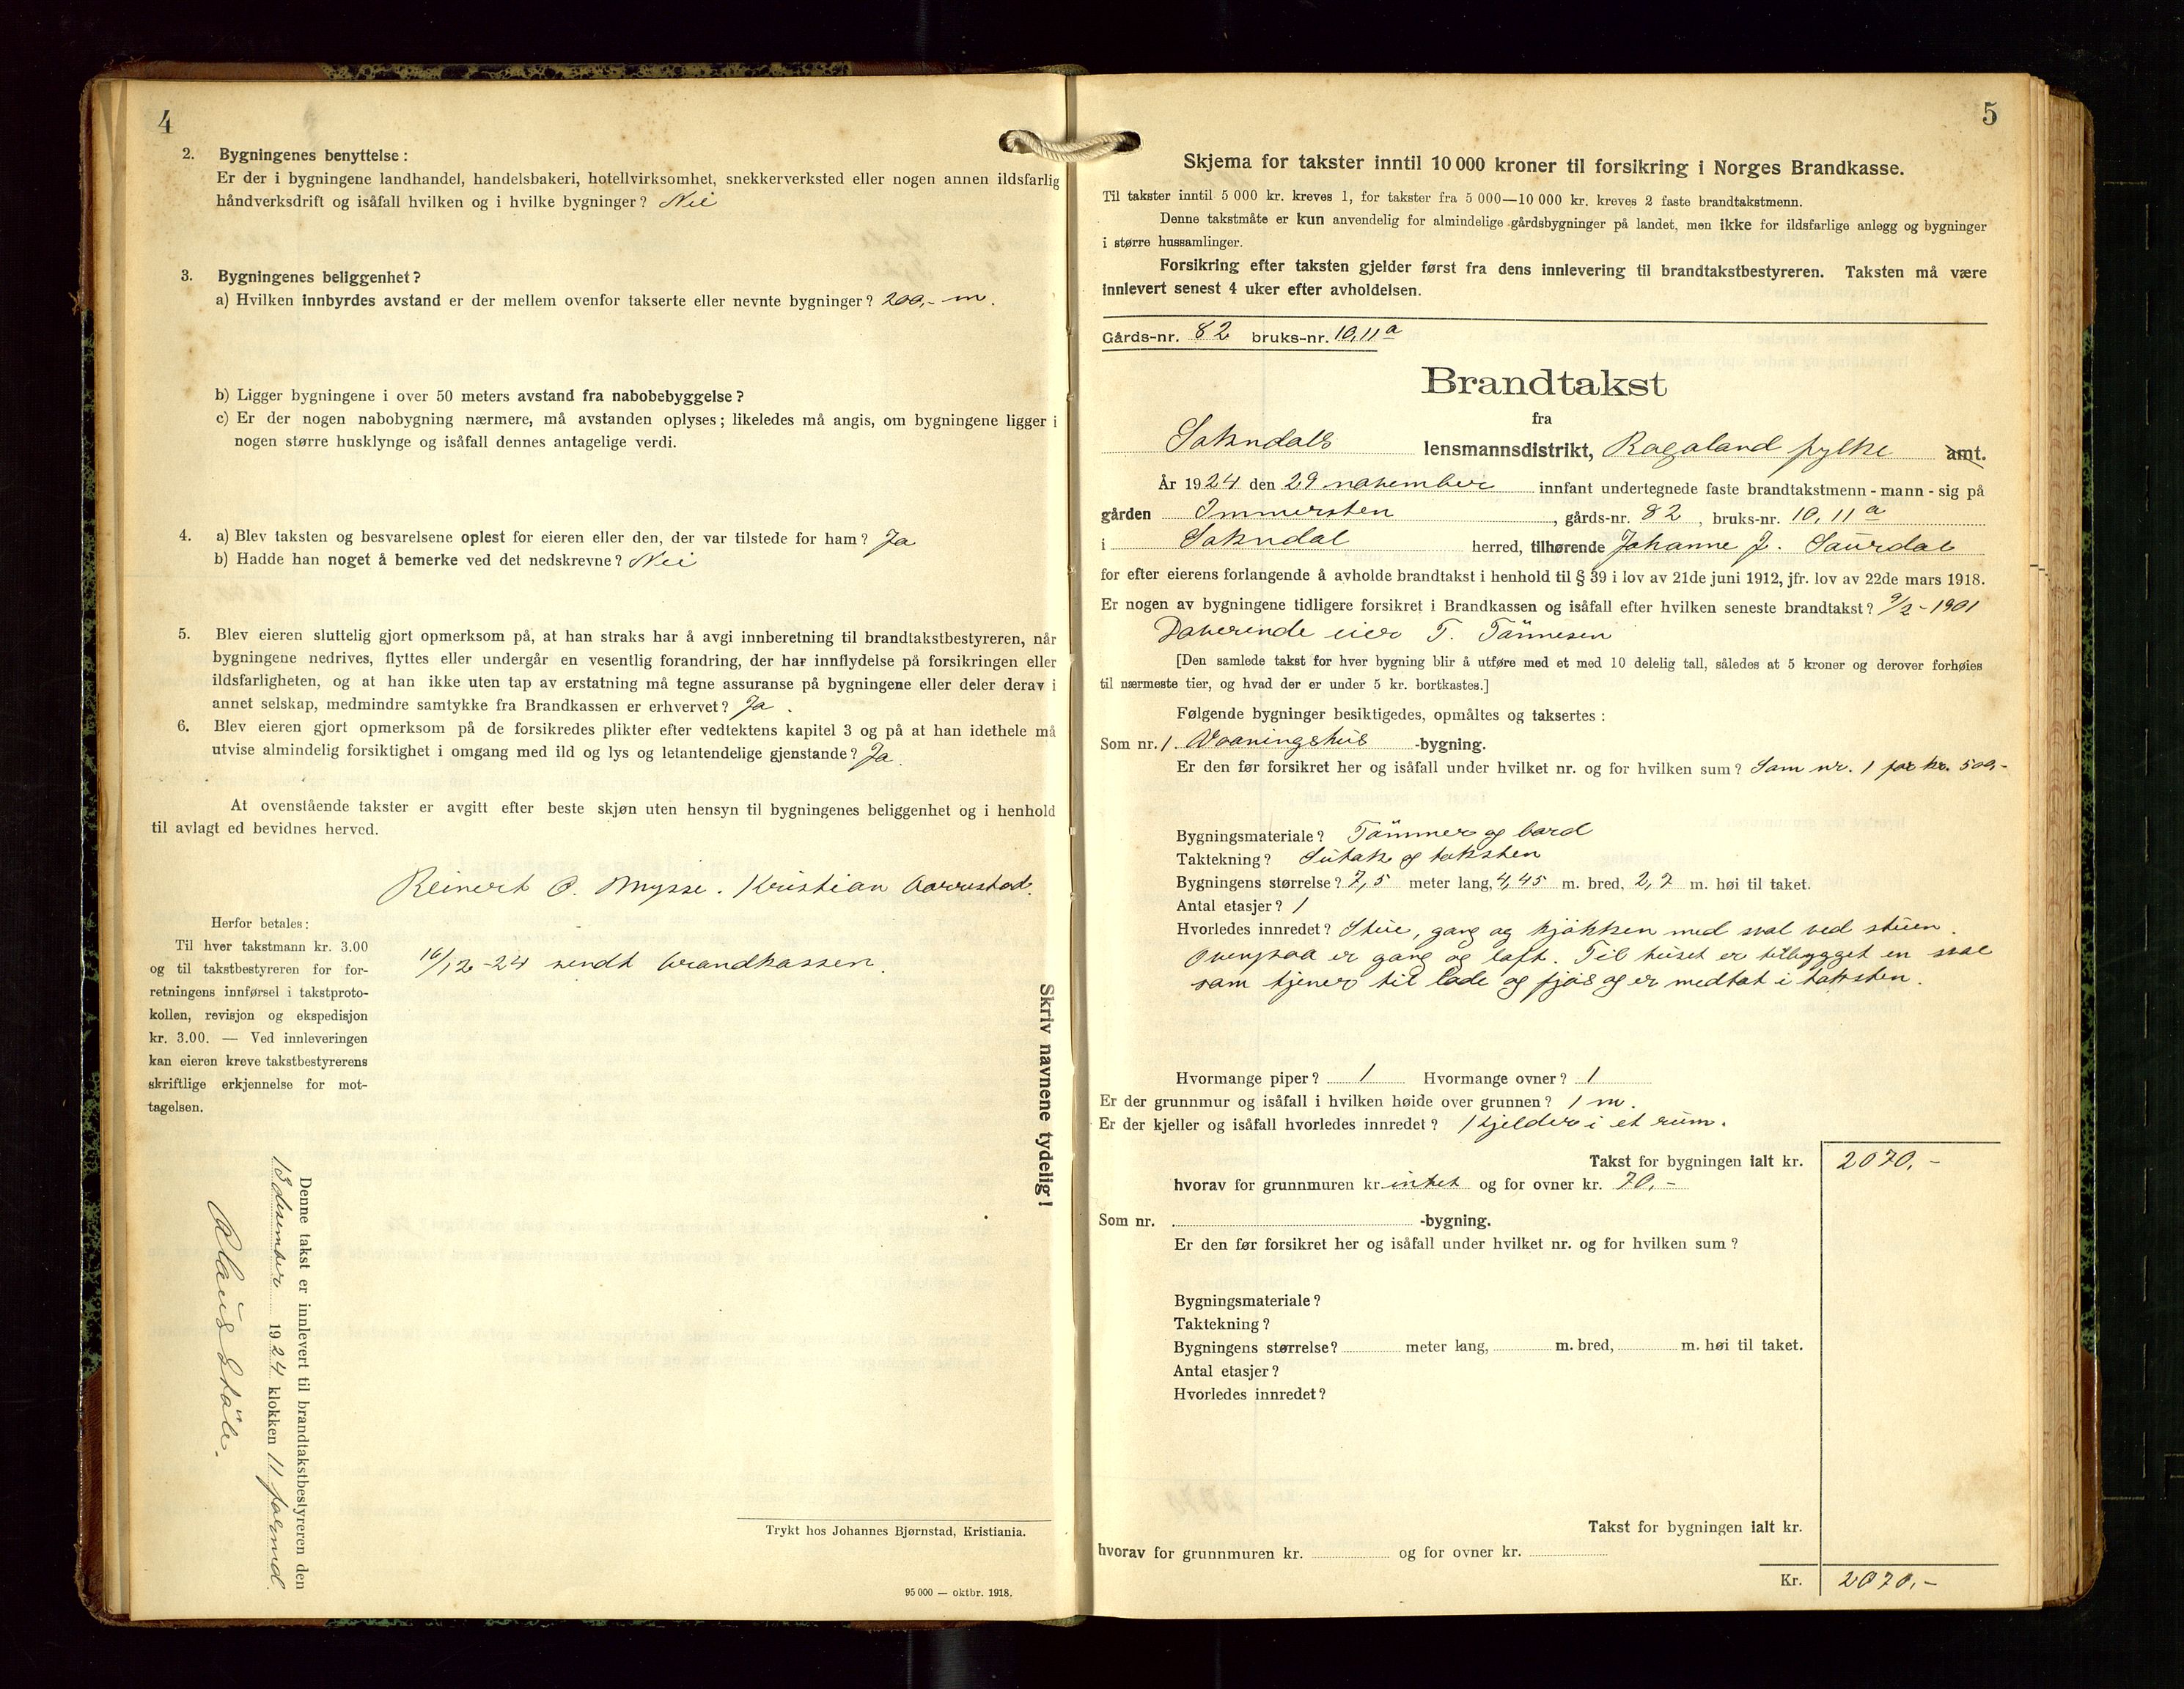 4
2. Bygningenes benyttelse:
Er der i bygningene landhandel, handelsbakeri, hotellvirksomhet, snekkerverksted eller nogen annen ildsfarlig
håndverksdrift og isåfall hvilken og i hvilke bygninger? Nei
3. Bygningenes beliggenhet?
a) Hvilken innbyrdes avstand er der mellem ovenfor takserte eller nevnte bygninger? 200,- m.
b) Ligger bygningene i over 50 meters avstand fra nabobebyggelse?
c) Er der nogen nabobygning nærmere, må avstanden oplyses; likeledes må angis, om bygningene ligger i
nogen større husklynge og isåfall dennes antagelige verdi.
4. a) Blev taksten og besvarelsene oplest for eieren eller den, der var tilstede for ham? Ja
b) Hadde han noget å bemerke ved det nedskrevne? Nei
5. Blev eieren sluttelig gjort opmerksom på, at han straks har å avgi innberetning til brandtakstbestyreren, når
bygningene nedrives, flyttes eller undergår en vesentlig forandring, der har innflydelse på forsikringen eller
ildsfarligheten, og at han ikke uten tap av erstatning må tegne assuranse på bygningene eller deler derav i
annet selskap, medmindre samtykke fra Brandkassen er erhvervet? Ja.
6. Blev eieren gjort opmerksom på de forsikredes plikter efter vedtektens kapitel 3 og på at han idethele må
utvise almindelig forsiktighet i omgang med ild og lys og letantendelige gjenstande? Ja.
At ovenstående takster er avgitt efter beste skjøn uten hensyn til bygningenes beliggenhet og i henhold
til avlagt ed bevidnes herved.
Reinert O. Mysse. Kristian Aarrestad.
Herfor betales:
Til hver takstmann kr. 3.00
og til takstbestyreren for for-
retningens innførsel i takstproto-
kollen, revisjon og ekspedisjon
kr. 3.00. — Ved innleveringen
kan eieren kreve takstbestyrerens
skriftlige erkjennelse for mot-
tagelsen.
16/12-24 sendt brandkassen.
Skriv navnene tydelig!
Denne takst er innlevert til brandtakstbestyreren den
13 desember 1924 klokken 11 formd.
Claus Ståle.
Trykt hos Johannes Bjørnstad, Kristiania.
95 000 — oktbr. 1918.
5
Skjema for takster inntil 10 000 kroner til forsikring i Norges Brandkasse.
Til takster inntil 5 000 kr. kreves 1, for takster fra 5 000—10 000 kr. kreves 2 faste brandtakstmenn.
Denne takstmåte er kun anvendelig for almindelige gårdsbygninger på landet, men ikke for ildsfarlige anlegg og bygninger
i større hussamlinger.
Forsikring efter taksten gjelder først fra dens innlevering til brandtakstbestyreren. Taksten må være
innlevert senest 4 uker efter avholdelsen.
Gårds-nr. 82 bruks-nr. 10,11a
Brandtakst
fra
Sokndals lensmannsdistrikt, Rogaland fylke amt.
År 1924 den 29 november innfant undertegnede faste brandtakstmenn - mann - sig på
gården Immersten, gårds-nr. 82, bruks-nr. 10, 11 a
i Sokndal herred, tilhørende Johanne J. Saurdal
for efter eierens forlangende å avholde brandtakst i henhold til § 39 i lov av 21de juni 1912, jfr. lov av 22de mars 1918.
Er nogen av bygningene tidligere forsikret i Brandkassen og isåfall efter hvilken seneste brandtakst? 9/2-1901
Daverende eier T. Tønnesen
[Den samlede takst for hver bygning blir å utføre med et med 10 delelig tall, således at 5 kroner og derover forhøies
til nærmeste tier, og hvad der er under 5 kr. bortkastes.]
Følgende bygninger besiktigedes, opmåltes og taksertes:
Som nr. 1. Vaaningshus -bygning.
Er den før forsikret her og isåfall under hvilket nr. og for hvilken sum? Som nr. 1 for kr. 500,-
Bygningsmateriale? Tømmer og bord
Taktekning? Sutak og taksten
Bygningens størrelse? 7,5 meter lang, 4,45 m. bred, 2,7 m. høi til taket.
Antal etasjer? 1
Hvorledes innredet? Stue, gang og kjøkken med sval ved stuen.
Ovenpaa er gang og loft. Til huset er tilbygget en sval
som tjener til lode og fjøs og er medtat i taksten.
Hvormange piper? 1 Hvormange ovner? 1
Er der grunnmur og isåfall i hvilken høide over grunnen? 1 m.
Er der kjeller og isåfall hvorledes innredet? 1 kjelder i et rum.
Takst for bygningen ialt kr. 2070,-
hvorav for grunnmuren kr intet og for ovner kr. 70,-
Som nr. -bygning.
Er den før forsikret her og isåfall under hvilket nr. og for hvilken sum?
Bygningsmateriale?
Taktekning?
Bygningens størrelse? meter lang, m. bred, m. høi til taket.
Antal etasjer?
Hvorledes innredet?
Takst for bygningen ialt kr.
hvorav for grunnmuren kr. og for ovner kr.
Kr. 2070,-